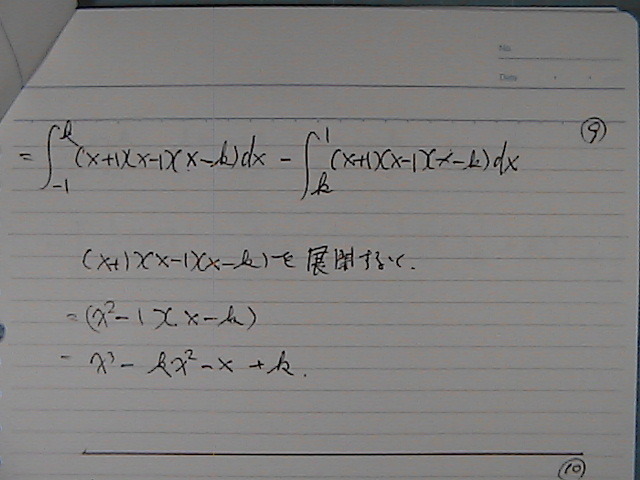 No.
Date
⑨
= ∫_{-1}^{k} (x+1)(x-1)(x-k)dx - ∫_{k}^{1} (x+1)(x-1)(x-k)dx
(x+1)(x-1)(x-k)を展開すると.
= (x²-1)(x-k)
= x³ - kx² - x + k.
⑩